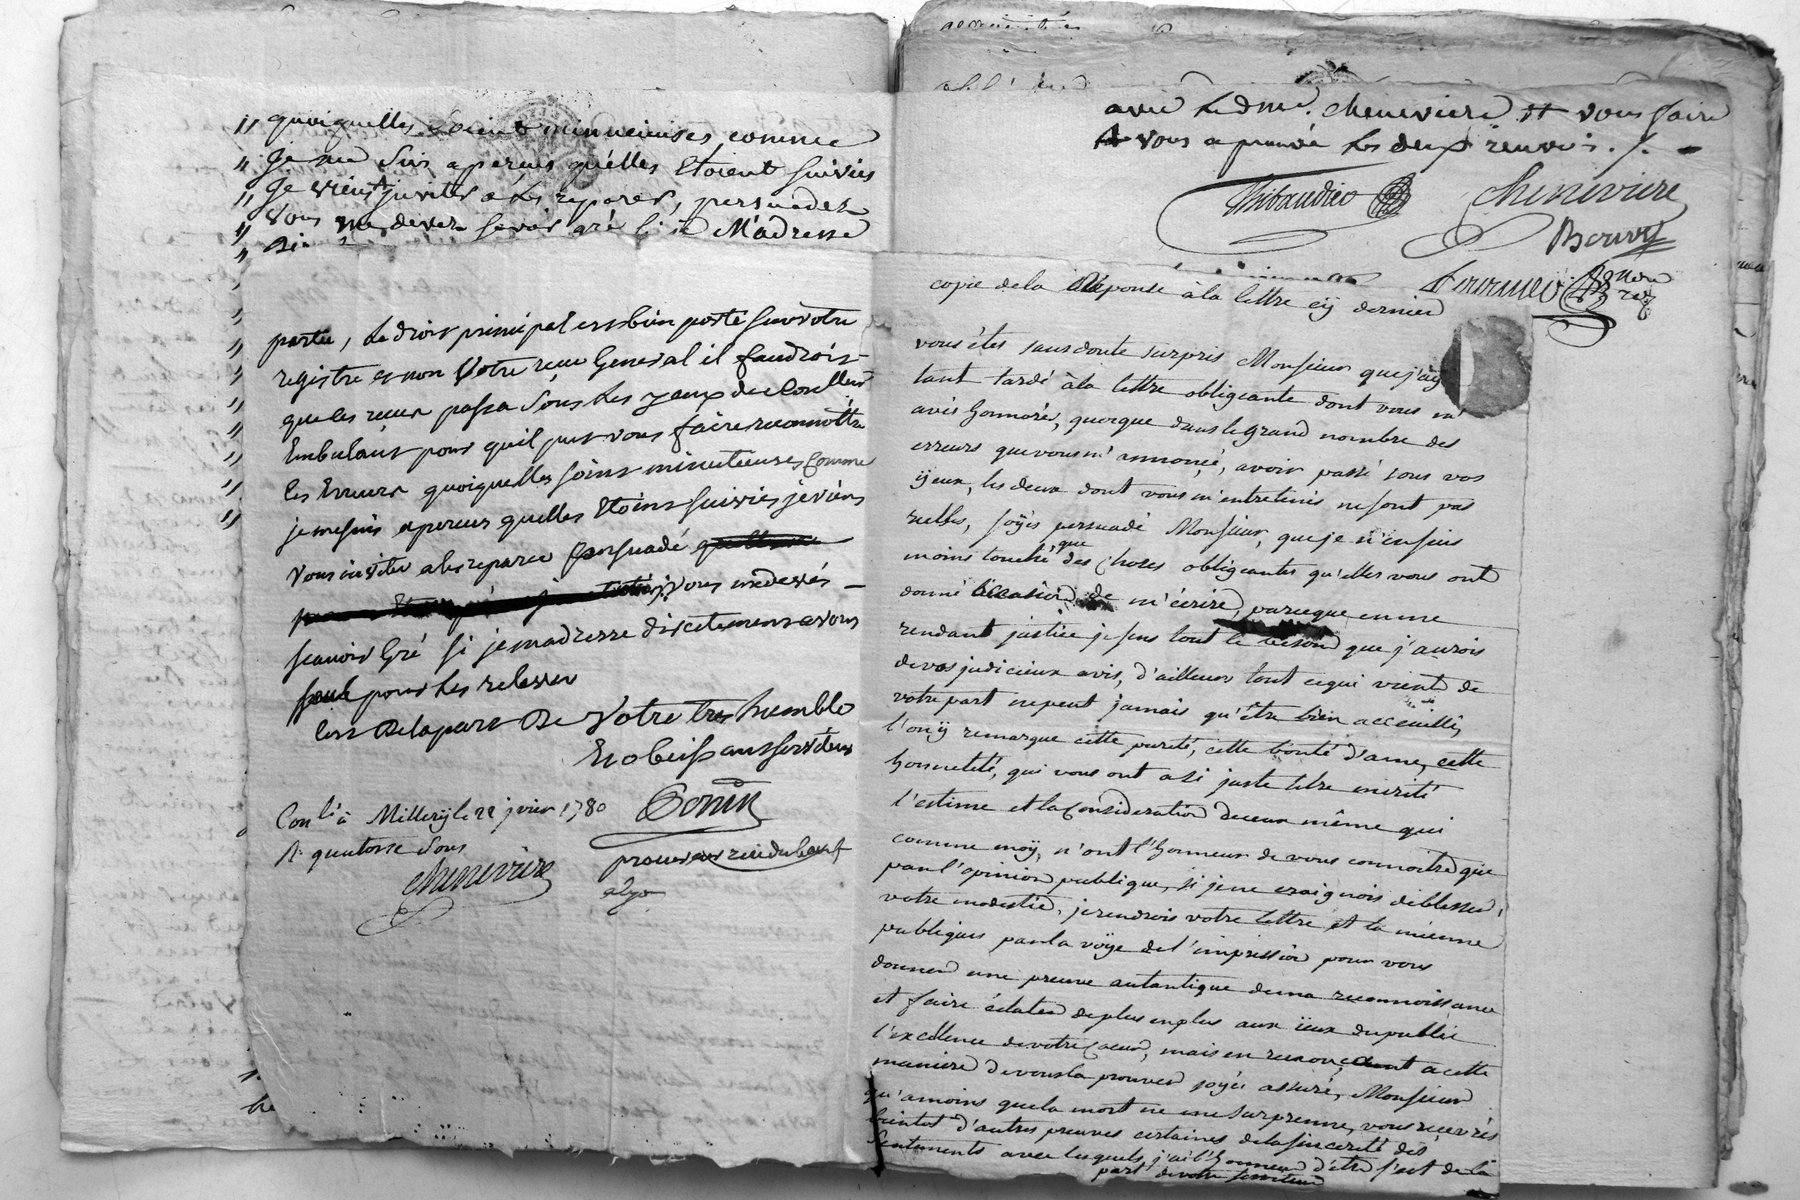 " quoiquelles Soient minucieuses comme
" Je me Suis aperçus quelles Etoient Suivies
" Je viens juviter a les reparer, persuadez
" Vous me devez savoir gré si je M'adresse
partie, Le droit principal est bien porté sur votre
registre et non Votre recu General il faudroit
que les recus passa Sous Les yeux de Conlleur
Embulant pour quil put vous faire reconnottre
les Erreurs quoiquelles soint minutieuses Comme
je me suis apercus quelles Etoins suivies je viens
Vous inviter a les reparer persuadé
vous me devés
scavoir Gré si je madresse directement a vous
seul pour Les relever
Cest De la part De Votre tres humble
Et obeissant serviteur
Conlé à Millery le 22 jvier 1780
R quatorse Sous
chenevière
Bonin
procureur rue du beuf
a lyon
avec Le dme. cheneviere et vous faire
A vous aprouvé Les deux renvois ./.
Thibaudier chenevière
Bouvy
fournier
copie de la Réponse à la lettre cy dernier
vous êtes sans doute surpris Monsieur que j'ay
tant tardé à la lettre obligeante dont vous m'
avés honnoré, quoique dans le grand nombre des
erreurs que vous m'annoncé, avoir passé sous vos
ÿeux, les deux dont vous m'entretenis ne sont pas
reelles, soÿés persuadé Monsieur, que je n'en suis
moins touché que des choses obligeantes qu'elles vous ont
donné l'occasion de m'écrire, parceque en me
rendant justice je sens tout le besoin que j'aurois
de vos judicieux avis, d'ailleur tout ce qui vient de
votre part ne peut jamais qu'être bien acceuilli,
l'on ÿ remarque cette pureté, cette bonté d'ame, cette
honnetété, qui vous ont a si juste titre mérité
l'estime et la Consideration de ceux même qui
comme moÿ, n'ont l'honneur de vous connoitre que
par l'opinion publique, si je ne craignois de blesser
votre modestie, je rendrois votre lettre et la mienne
publiques par la voÿe de l'impression pour vous
donner une preuve autantique de ma reconnoissance
et faire éclater de plus en plus aux ÿeux du public
l'excellence de votre Coeur, mais en renonçant a cette
maniere de vous la prouver soÿés assuré, Monsieur
qu'amoins que la mort ne me surprenne, vous reçevrés
bientot d'autres preuves certaines de la sincereté des
Sentiments avec lesquels j'ai l'honneur d'être c'est de la
part de votre serviteur